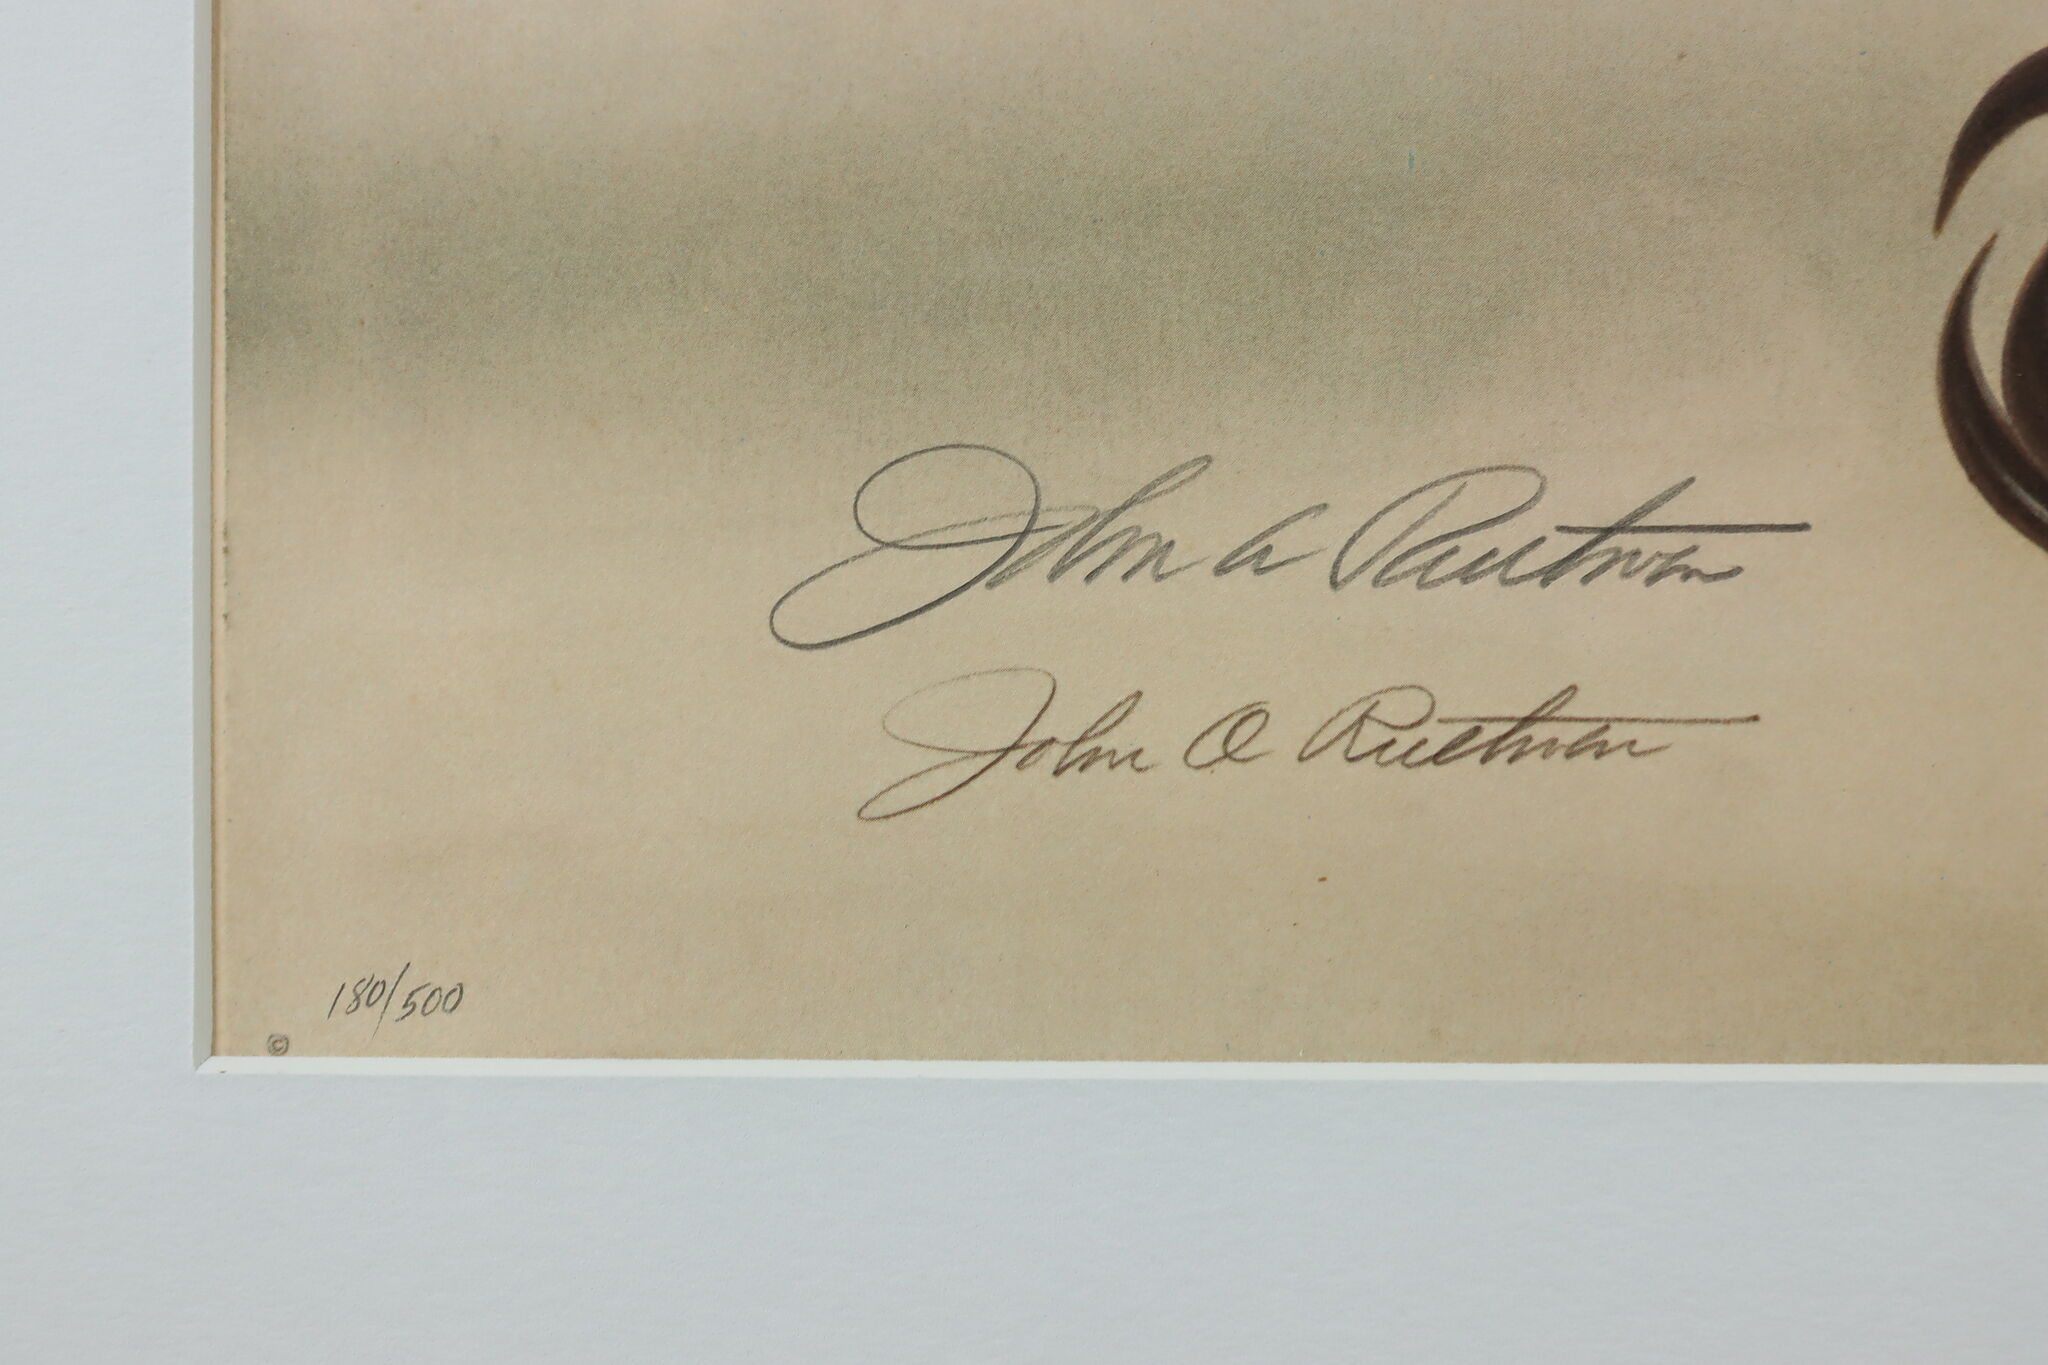 John A Ruthven
John A Ruthven
180/500
©